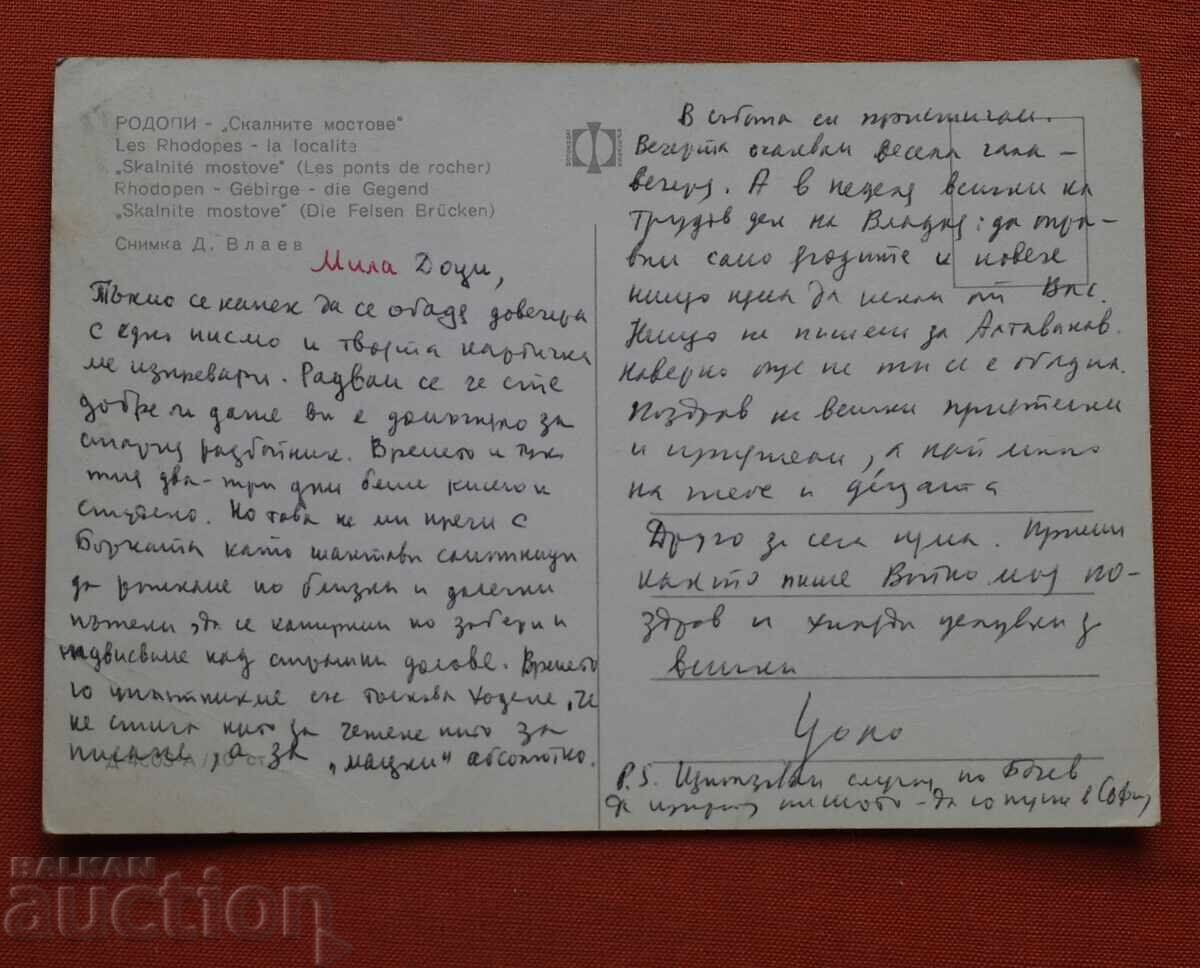 РОДОПИ - „Скалните мостове"
Les Rhodopes - la localite
„Skalnité mostove" (Les ponts de rocher)
Rhodopen - Gebirge - die Gegend
„Skalnite mostove" (Die Felsen Brücken)
Снимка Д. Влаев
Мила Доци,
Тъкмо се канех да се обадя довечера
с едно писмо и твоята картичка
ме изпревари. Радвам се че сте
добре и даже ви е домъчняло за
стария разбойник. Времето и тук
тия два-три дни беше кисело и
студено. Но това не ми пречи с
Борката като шантави
да по близки и далечни
пътеки, да се катерим по зъбери и
надвисваме над стръмни долове. Времето
го уплътнихме със толкова ходене, че
не стига нито за четене нито за
писане, а за „мацки" абсолютно.
В събота си пристигам.
Вечерта очаквам весела гала-
вечеря. А в неделя всички на
трудов ден на Владая: да обра-
ним само ягодите и повече
нищо няма да искам от Вас.
Нищо не пишеш за Алтаванов.
Навярно още не ти се е обадил.
Поздрав на всички приятелки
и приятели, а най много
на тебе и децата
Друго за сега няма. Приеми
както пише Витко мой по-
здрав и хиляди целувки за
всички
Цоно
P.S. Използвам случая по Бачев
да изпратя писмото - да го пусне в София
BALKAN
auction